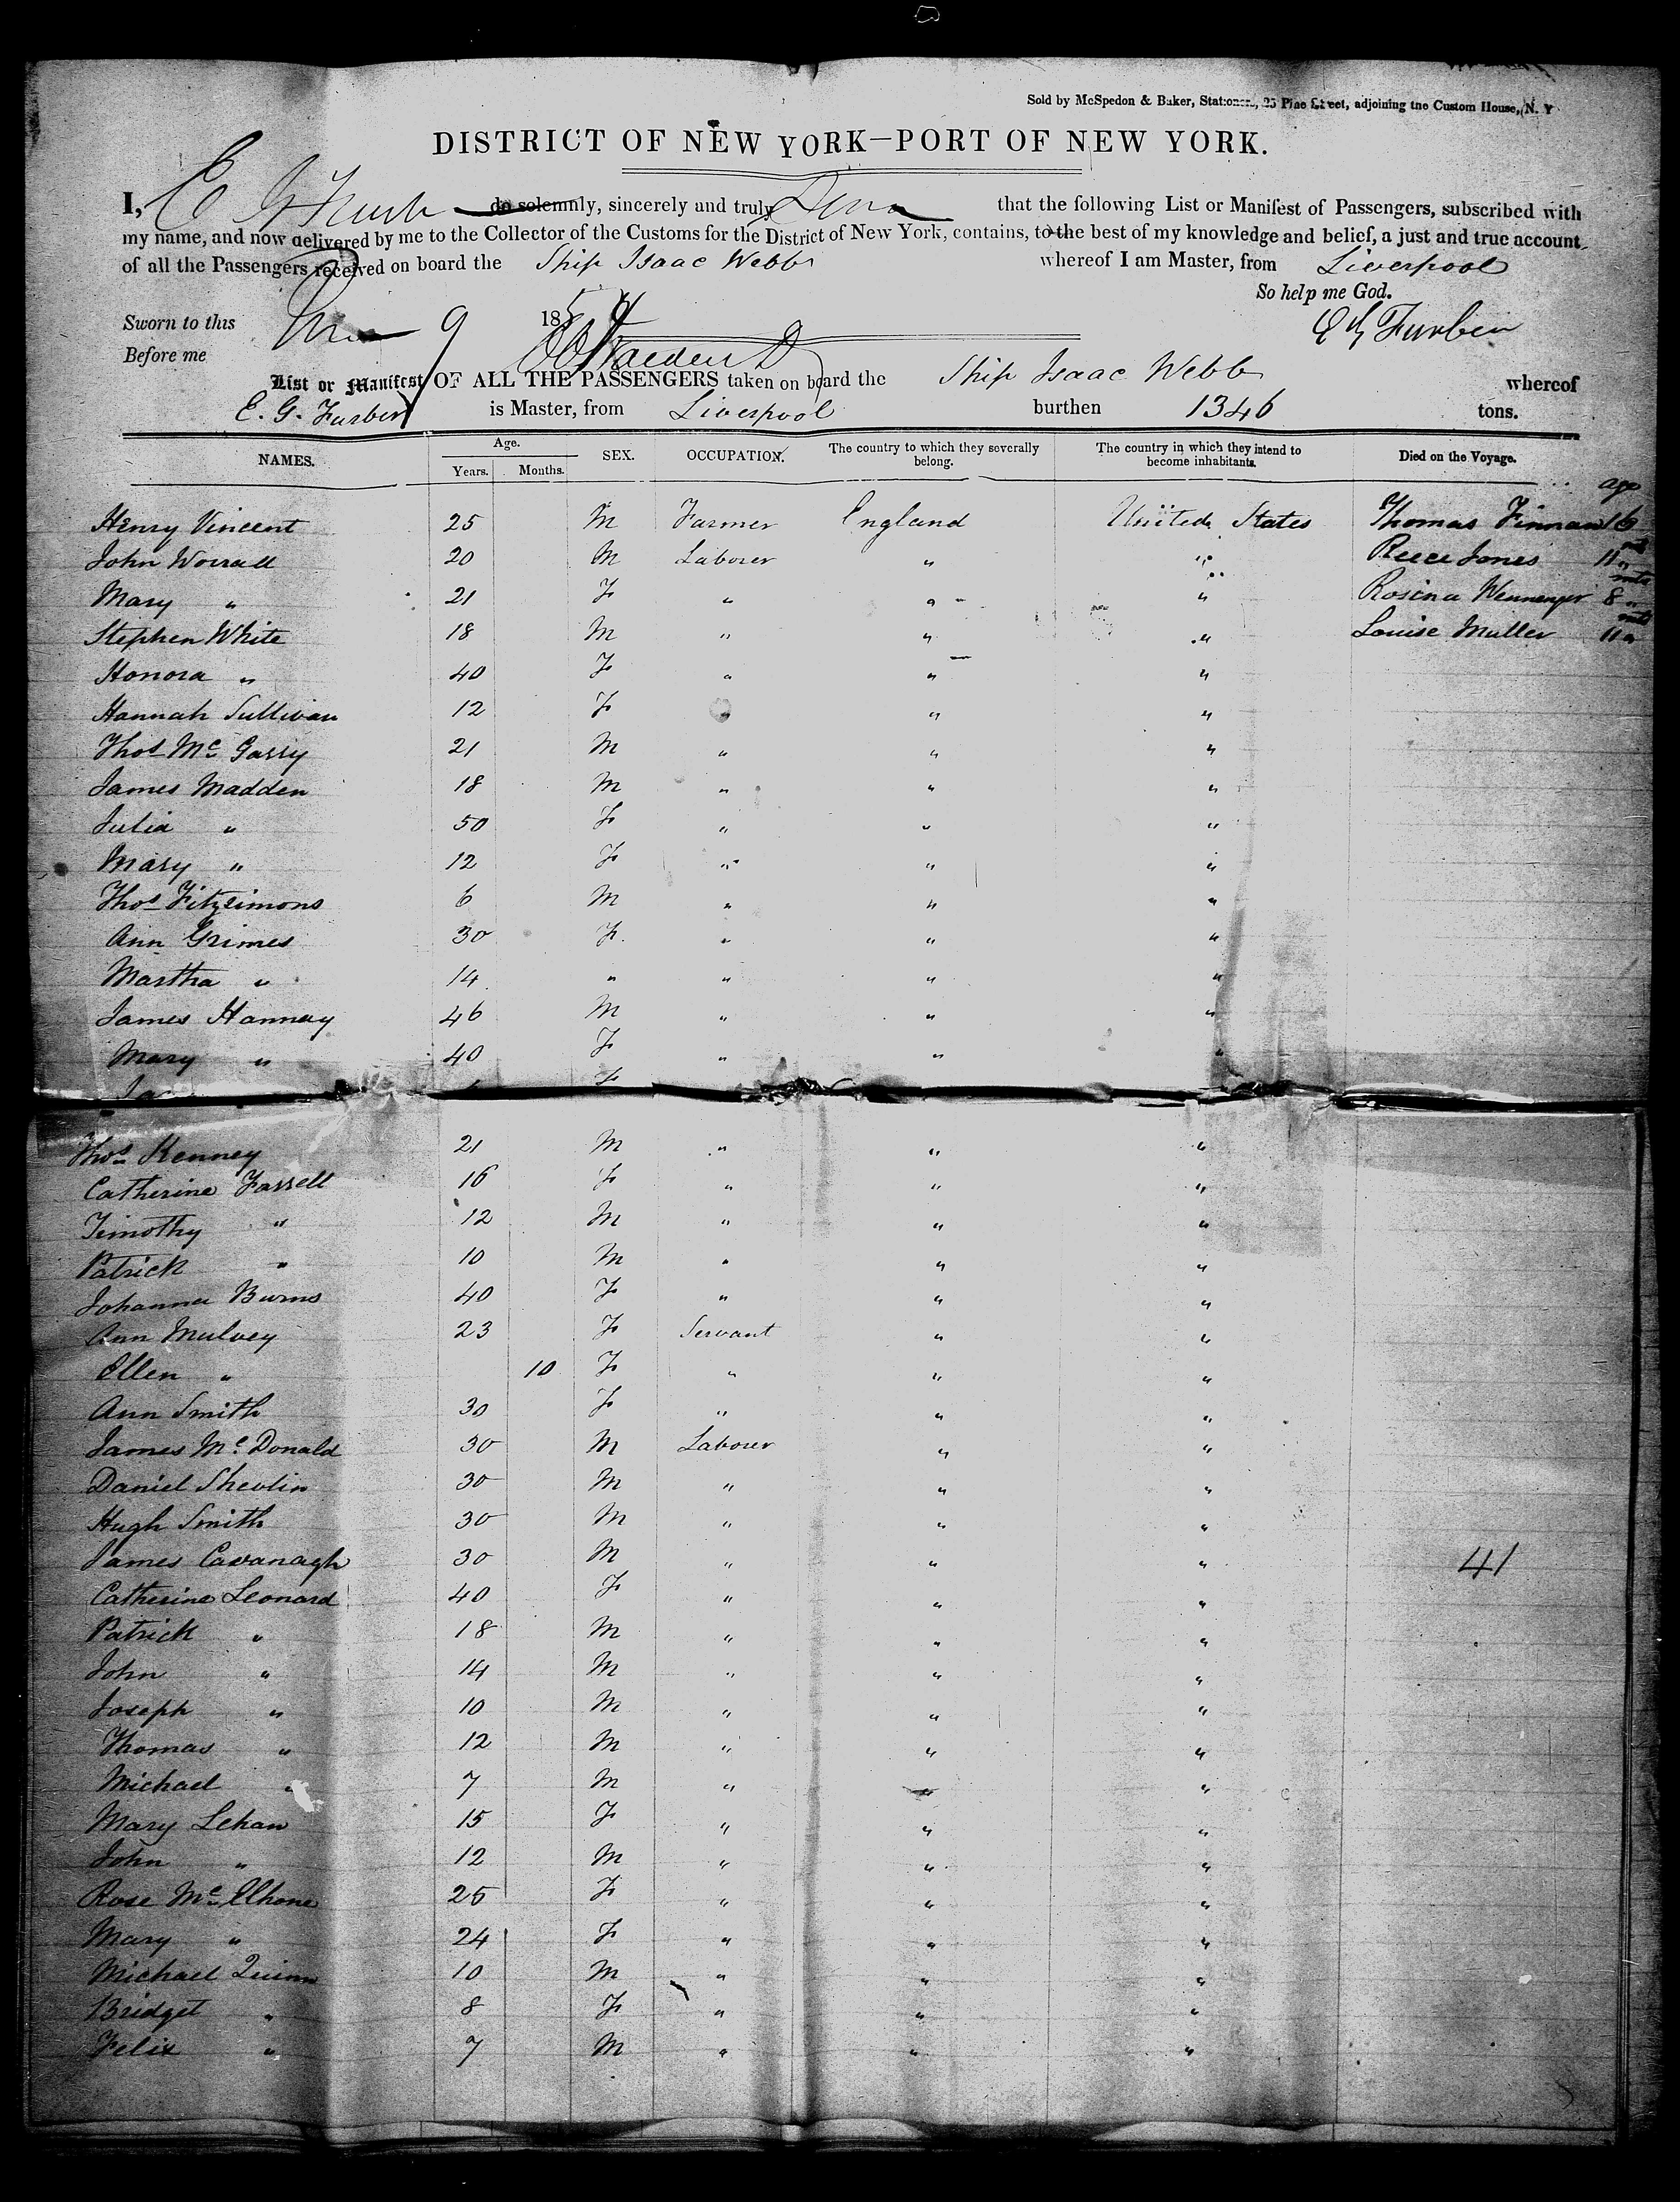 Sold by McSpedon & Baker, Stationers, 25 Pine Street, adjoining the Custom House, N. Y
DISTRICT OF NEW YORK—PORT OF NEW YORK.
I, E G Furber do solemnly, sincerely and truly that the following List or Manifest of Passengers, subscribed with
my name, and now delivered by me to the Collector of the Customs for the District of New York, contains, to the best of my knowledge and belief, a just and true account
of all the Passengers received on board the Ship Isaac Webb whereof I am Master, from Liverpool
So help me God.
Sworn to this 9 185 E G Furber
Before me
List or Manifest OF ALL THE PASSENGERS taken on board the Ship Isaac Webb whereof
E. G. Furber is Master, from Liverpool burthen 1346 tons.
NAMES. Age. Years. Months. SEX. OCCUPATION. The country to which they severally belong. The country in which they intend to become inhabitants. Died on the Voyage.
age
Henry Vincent 25 M Farmer England United States Thomas Finnan 16
John Worrall 20 M Laborer " " Reece Jones 11 mts
Mary " 21 F " " " Rosina 8 mts
Stephen White 18 M " " " Louise Muller 11 mts
Honora " 40 F " " "
Hannah Sullivan 12 F " " "
Thos Mc Garry 21 M " " "
James Madden 18 M " " "
Julia " 50 F " " "
Mary " 12 F " " "
Thos Fitzsimons 6 M " " "
Ann Grimes 30 F. " " "
Martha " 14 " " " "
James Hannay 46 M " " "
Mary " 40 F " " "
Thos Kenney 21 M " " "
Catherine Farrell 16 F " " "
Timothy " 12 M " " "
Patrick " 10 M " " "
Johanna Burns 40 F " " "
Ann Mulvey 23 F Servant " "
Ellen " 10 F " " "
Ann Smith 30 F " " "
James Mc Donald 30 M Laborer " "
Daniel Shevlin 30 M " " "
Hugh Smith 30 M " " "
James Cavanagh 30 M " " " 41
Catherine Leonard 40 F " " "
Patrick " 18 M " " "
John " 14 M " " "
Joseph " 10 M " " "
Thomas " 12 M " " "
Michael " 7 M " " "
Mary Lehan 15 F " " "
John " 12 M " " "
Rose Mc Elhone 25 F " " "
Mary " 24 F " " "
Michael Quinn 10 M " " "
Bridget " 8 F " " "
Felix " 7 M " " "